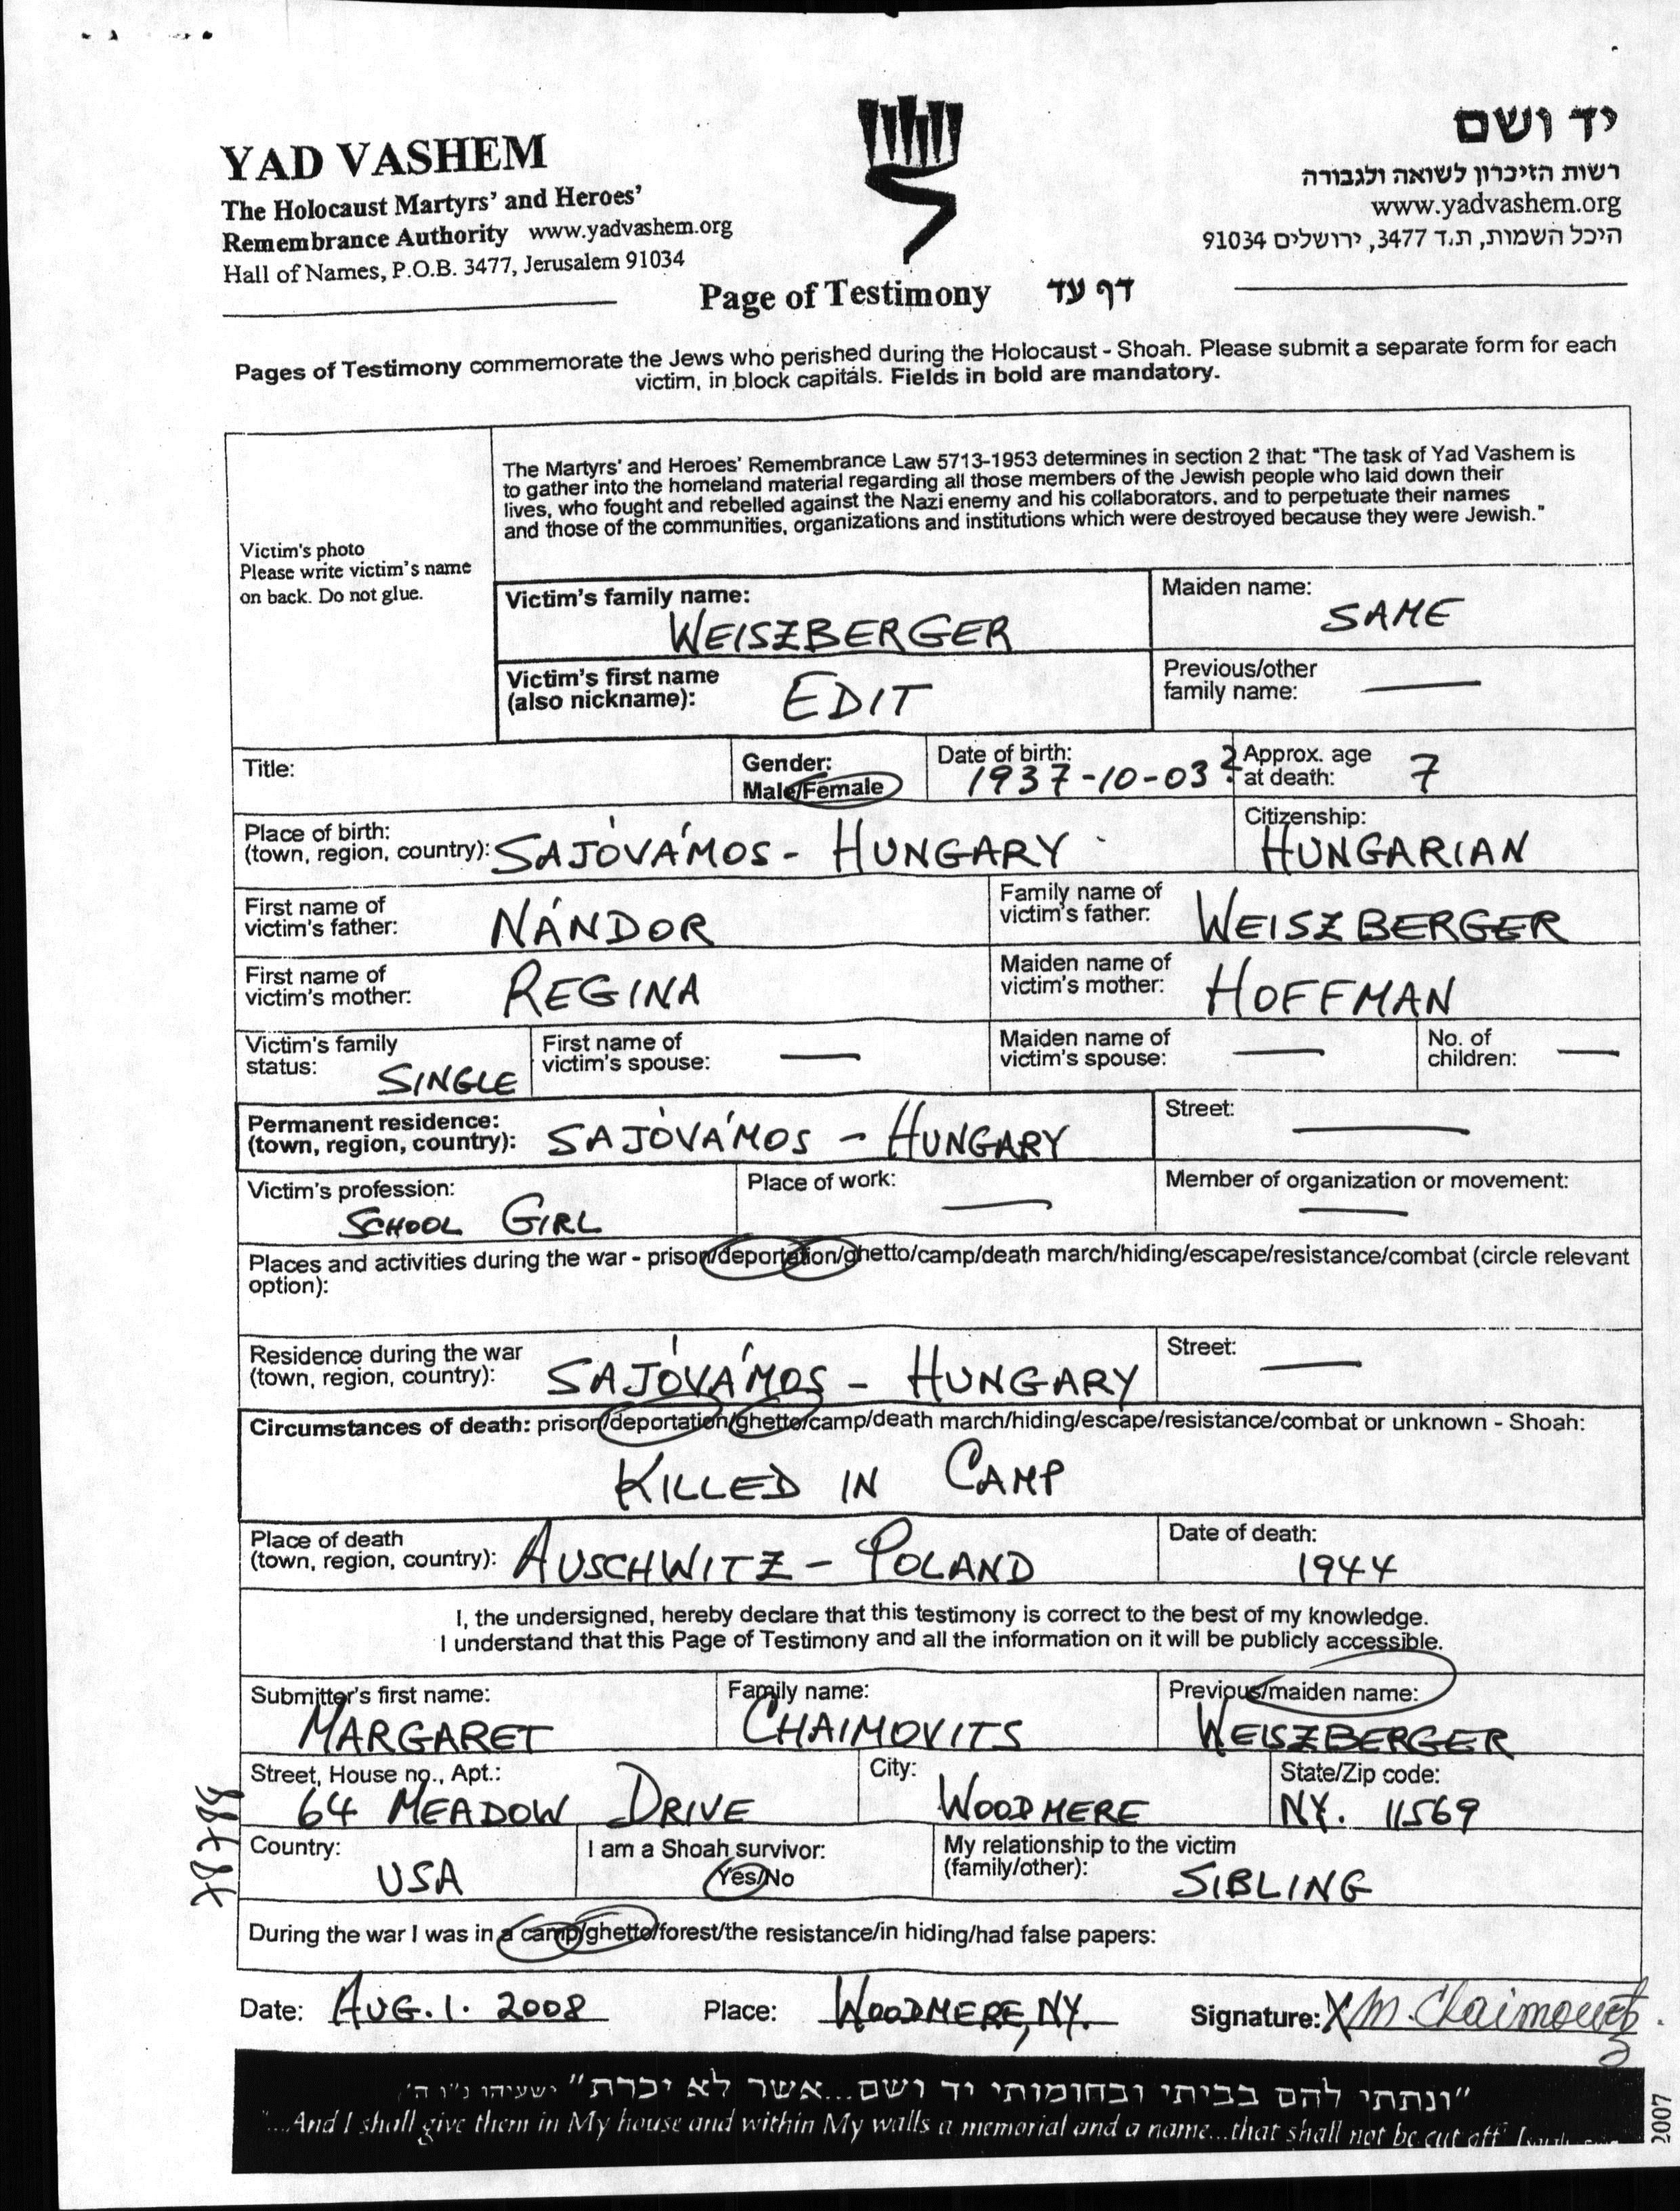 YAD VASHEM
The Holocaust Martyrs' and Heroes'
Remembrance Authority www.yadvashem.org
Hall of Names, P.O.B. 3477, Jerusalem 91034
יד ושם
רשות הזיכרון לשואה ולגבורה
www.yadvashem.org
היכל השמות, ת.ד 3477, ירושלים 91034
Page of Testimony דף עד
Pages of Testimony commemorate the Jews who perished during the Holocaust - Shoah. Please submit a separate form for each
victim, in block capitals. Fields in bold are mandatory.
The Martyrs' and Heroes' Remembrance Law 5713-1953 determines in section 2 that: "The task of Yad Vashem is
to gather into the homeland material regarding all those members of the Jewish people who laid down their
lives, who fought and rebelled against the Nazi enemy and his collaborators, and to perpetuate their names
and those of the communities, organizations and institutions which were destroyed because they were Jewish."
Victim's photo
Please write victim's name
on back. Do not glue.
Victim's family name:
WEISZBERGER
Maiden name:
SAME
Victim's first name
(also nickname): EDIT
Previous/other
family name: —
Title:
Gender:
Male/Female
Date of birth:
1937-10-03 ?
Approx. age
at death: 7
Place of birth:
(town, region, country): SAJÓVÁMOS - HUNGARY
Citizenship:
HUNGARIAN
First name of
victim's father: NÁNDOR
Family name of
victim's father: WEISZBERGER
First name of
victim's mother: REGINA
Maiden name of
victim's mother: HOFFMAN
Victim's family
status: SINGLE
First name of
victim's spouse: —
Maiden name of
victim's spouse: —
No. of
children: —
Permanent residence:
(town, region, country): SAJÓVÁMOS - HUNGARY
Street: —
Victim's profession:
SCHOOL GIRL
Place of work:
—
Member of organization or movement:
—
Places and activities during the war - prison/deportation/ghetto/camp/death march/hiding/escape/resistance/combat (circle relevant
option):
Residence during the war
(town, region, country): SAJÓVÁMOS - HUNGARY
Street: —
Circumstances of death: prison/deportation/ghetto/camp/death march/hiding/escape/resistance/combat or unknown - Shoah:
KILLED IN CAMP
Place of death
(town, region, country): AUSCHWITZ - POLAND
Date of death:
1944
I, the undersigned, hereby declare that this testimony is correct to the best of my knowledge.
I understand that this Page of Testimony and all the information on it will be publicly accessible.
Submitter's first name:
MARGARET
Family name:
CHAIMOVITS
Previous/maiden name:
WEISZBERGER
Street, House no., Apt.:
64 MEADOW DRIVE
City:
WOODMERE
State/Zip code:
NY. 11569
Country:
USA
I am a Shoah survivor:
Yes/No
My relationship to the victim
(family/other): SIBLING
During the war I was in a camp/ghetto/forest/the resistance/in hiding/had false papers:
Date: AUG. 1. 2008 Place: WOODMERE, NY. Signature: X M. Chaimovits
"ונתתי להם בביתי ובחומותי יד ושם...אשר לא יכרת" ישעיהו נ"ו ה'
"...And I shall give them in My house and within My walls a memorial and a name...that shall not be cut off"
2007